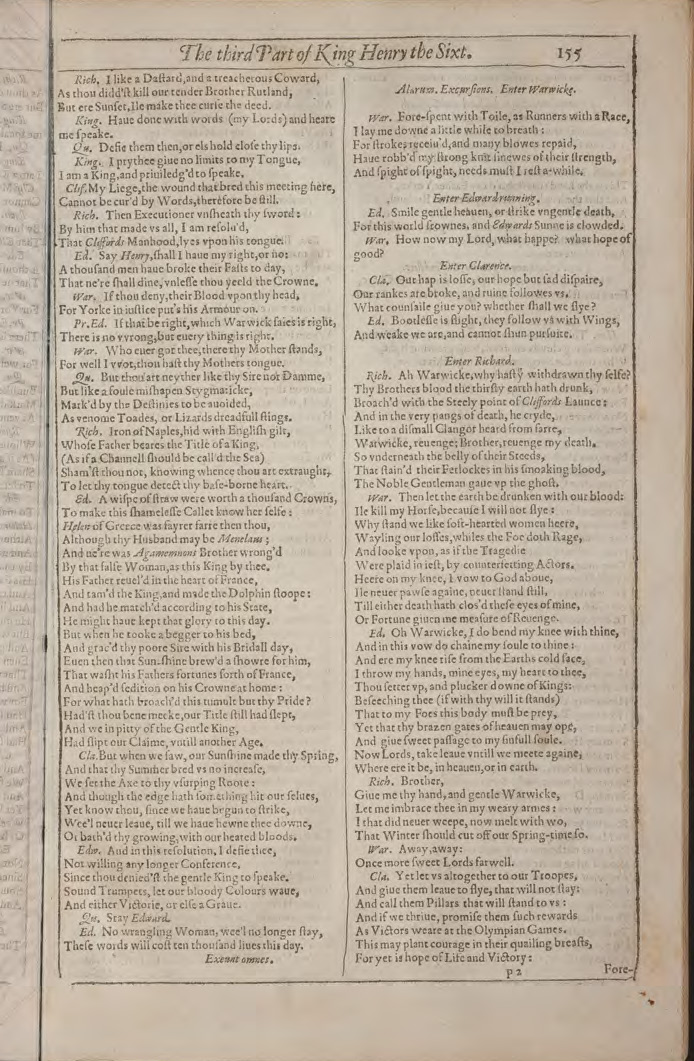 The third Part of King Henry the Sixt. 155
Rich. I like a Dastard, and a treacherous Coward,
As thou didd'ſt kill our tender Brother Rutland,
But ere Sunſet, Ile make thee curſe the deed.
King. Haue done with words (my Lords) and heare
me ſpeake.
Qu. Defie them then, or els hold cloſe thy lips.
King. I prythee giue no limits to my Tongue,
I am a King, and priuiledg'd to ſpeake.
Clif. My Liege, the wound that bred this meeting here,
Cannot be cur'd by Words, therefore be ſtill.
Rich. Then Executioner vnſheath thy ſword:
By him that made vs all, I am reſolu'd,
That Cliffords Manhood, lyes vpon his tongue.
Ed. Say Henry, ſhall I haue my right, or no:
A thouſand men haue broke their Faſts to day,
That ne're ſhall dine, vnleſſe thou yeeld the Crowne.
War. If thou deny, their Blood vpon thy head,
For Yorke in iuſtice put's his Armour on.
Pr. Ed. If that be right, which Warwick ſaies is right,
There is no vvrong, but euery thing is right.
War. Who euer got thee, there thy Mother ſtands,
For well I vvot, thou haſt thy Mothers tongue.
Qu. But thou art neyther like thy Sire nor Damme,
But like a foule miſhapen Stygmaticke,
Mark'd by the Deſtinies to be auoided,
As venome Toades, or Lizards dreadfull ſtings.
Rich. Iron of Naples, hid with Engliſh gilt,
Whoſe Father beares the Title of a King,
(As if a Channell ſhould be call'd the Sea)
Sham'ſt thou not, knowing whence thou art extraught,
To let thy tongue detect thy baſe-borne heart.
Ed. A wiſpe of ſtraw were worth a thouſand Crowns,
To make this ſhameleſſe Callet know her ſelfe:
Helen of Greece was fayrer farre then thou,
Although thy Husband may be Menelaus;
And ne're was Agamemnons Brother wrong'd
By that falſe Woman, as this King by thee.
His Father reuel'd in the heart of France,
And tam'd the King, and made the Dolphin ſtoope:
And had he match'd according to his State,
He might haue kept that glory to this day.
But when he tooke a begger to his bed,
And grac'd thy poore Sire with his Bridall day,
Euen then that Sun-ſhine brew'd a ſhowre for him,
That waſht his Fathers fortunes forth of France,
And heap'd ſedition on his Crowne at home:
For what hath broach'd this tumult but thy Pride?
Had'ſt thou bene meeke, our Title ſtill had ſlept,
And we in pitty of the Gentle King,
Had ſlipt our Claime, vntill another Age.
Cla. But when we ſaw, our Sunſhine made thy Spring,
And that thy Summer bred vs no increaſe,
We ſet the Axe to thy vſurping Roote:
And though the edge hath ſomething hit our ſelues,
Yet know thou, ſince we haue begun to ſtrike,
Wee'l neuer leaue, till we haue hewne thee downe,
Or bath'd thy growing, with our heated bloods.
Edw. And in this reſolution, I defie thee,
Not willing any longer Conference,
Since thou denied'ſt the gentle King to ſpeake.
Sound Trumpets, let our bloody Colours waue,
And either Victorie, or elſe a Graue.
Qu. Stay Edward.
Ed. No wrangling Woman, wee'l no longer ſtay,
Theſe words will coſt ten thouſand liues this day.
Exeunt omnes.
Alarum. Excurſions. Enter Warwicke.
War. Fore-ſpent with Toile, as Runners with a Race,
I lay me downe a little while to breath:
For ſtrokes receiu'd, and many blowes repaid,
Haue robb'd my ſtrong knit ſinewes of their ſtrength,
And ſpight of ſpight, needs muſt I reſt a-while.
Enter Edward running.
Ed. Smile gentle heauen, or ſtrike vngentle death,
For this world frownes, and Edwards Sunne is clowded.
War. How now my Lord, what happe? what hope of
good?
Enter Clarence.
Cla. Our hap is loſſe, our hope but ſad diſpaire,
Our rankes are broke, and ruine followes vs.
What counſaile giue you? whether ſhall we flye?
Ed. Bootleſſe is flight, they follow vs with Wings,
And weake we are, and cannot ſhun purſuite.
Enter Richard.
Rich. Ah Warwicke, why haſt ÿ withdrawn thy ſelfe?
Thy Brothers blood the thirſty earth hath drunk,
Broach'd with the Steely point of Cliffords Launce:
And in the very pangs of death, he cryde,
Like to a diſmall Clangor heard from farre,
Warwicke, reuenge; Brother, reuenge my death.
So vnderneath the belly of their Steeds,
That ſtain'd their Fetlockes in his ſmoaking blood,
The Noble Gentleman gaue vp the ghoſt.
War. Then let the earth be drunken with our blood:
Ile kill my Horſe, becauſe I will not flye:
Why ſtand we like ſoft-hearted women heere,
Wayling our loſſes, whiles the Foe doth Rage,
And looke vpon, as if the Tragedie
Were plaid in ieſt, by counterfetting Actors.
Heere on my knee, I vow to God aboue,
Ile neuer pawſe againe, neuer ſtand ſtill,
Till either death hath clos'd theſe eyes of mine,
Or Fortune giuen me meaſure of Reuenge.
Ed. Oh Warwicke, I do bend my knee with thine,
And in this vow do chaine my ſoule to thine:
And ere my knee riſe from the Earths cold face,
I throw my hands, mine eyes, my heart to thee,
Thou ſetter vp, and plucker downe of Kings:
Beſeeching thee (if with thy will it ſtands)
That to my Foes this body muſt be prey,
Yet that thy brazen gates of heauen may ope,
And giue ſweet paſſage to my ſinfull ſoule.
Now Lords, take leaue vntill we meete againe,
Where ere it be, in heauen, or in earth.
Rich. Brother,
Giue me thy hand, and gentle Warwicke,
Let me imbrace thee in my weary armes:
I that did neuer weepe, now melt with wo,
That Winter ſhould cut off our Spring-time ſo.
War. Away, away:
Once more ſweet Lords farwell.
Cla. Yet let vs altogether to our Troopes,
And giue them leaue to flye, that will not ſtay:
And call them Pillars that will ſtand to vs:
And if we thriue, promiſe them ſuch rewards
As Victors weare at the Olympian Games.
This may plant courage in their quailing breaſts,
For yet is hope of Life and Victory:
p 2 Fore-